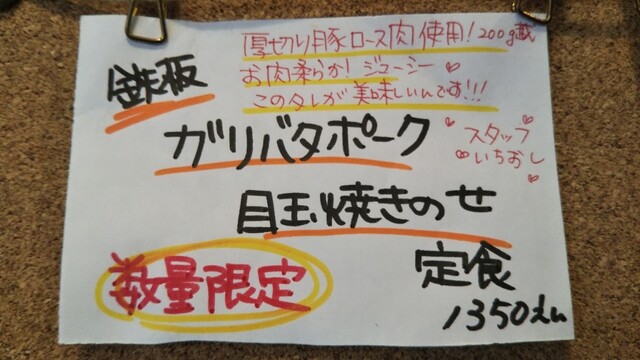 厚切り豚ロース肉使用!200g越
お肉柔らか!ジューシー
このタレが美味しいんです!!!
鉄板
ガリバタポーク
スタッフ
いちおし
目玉焼きのせ
定食
数量限定
1350えん